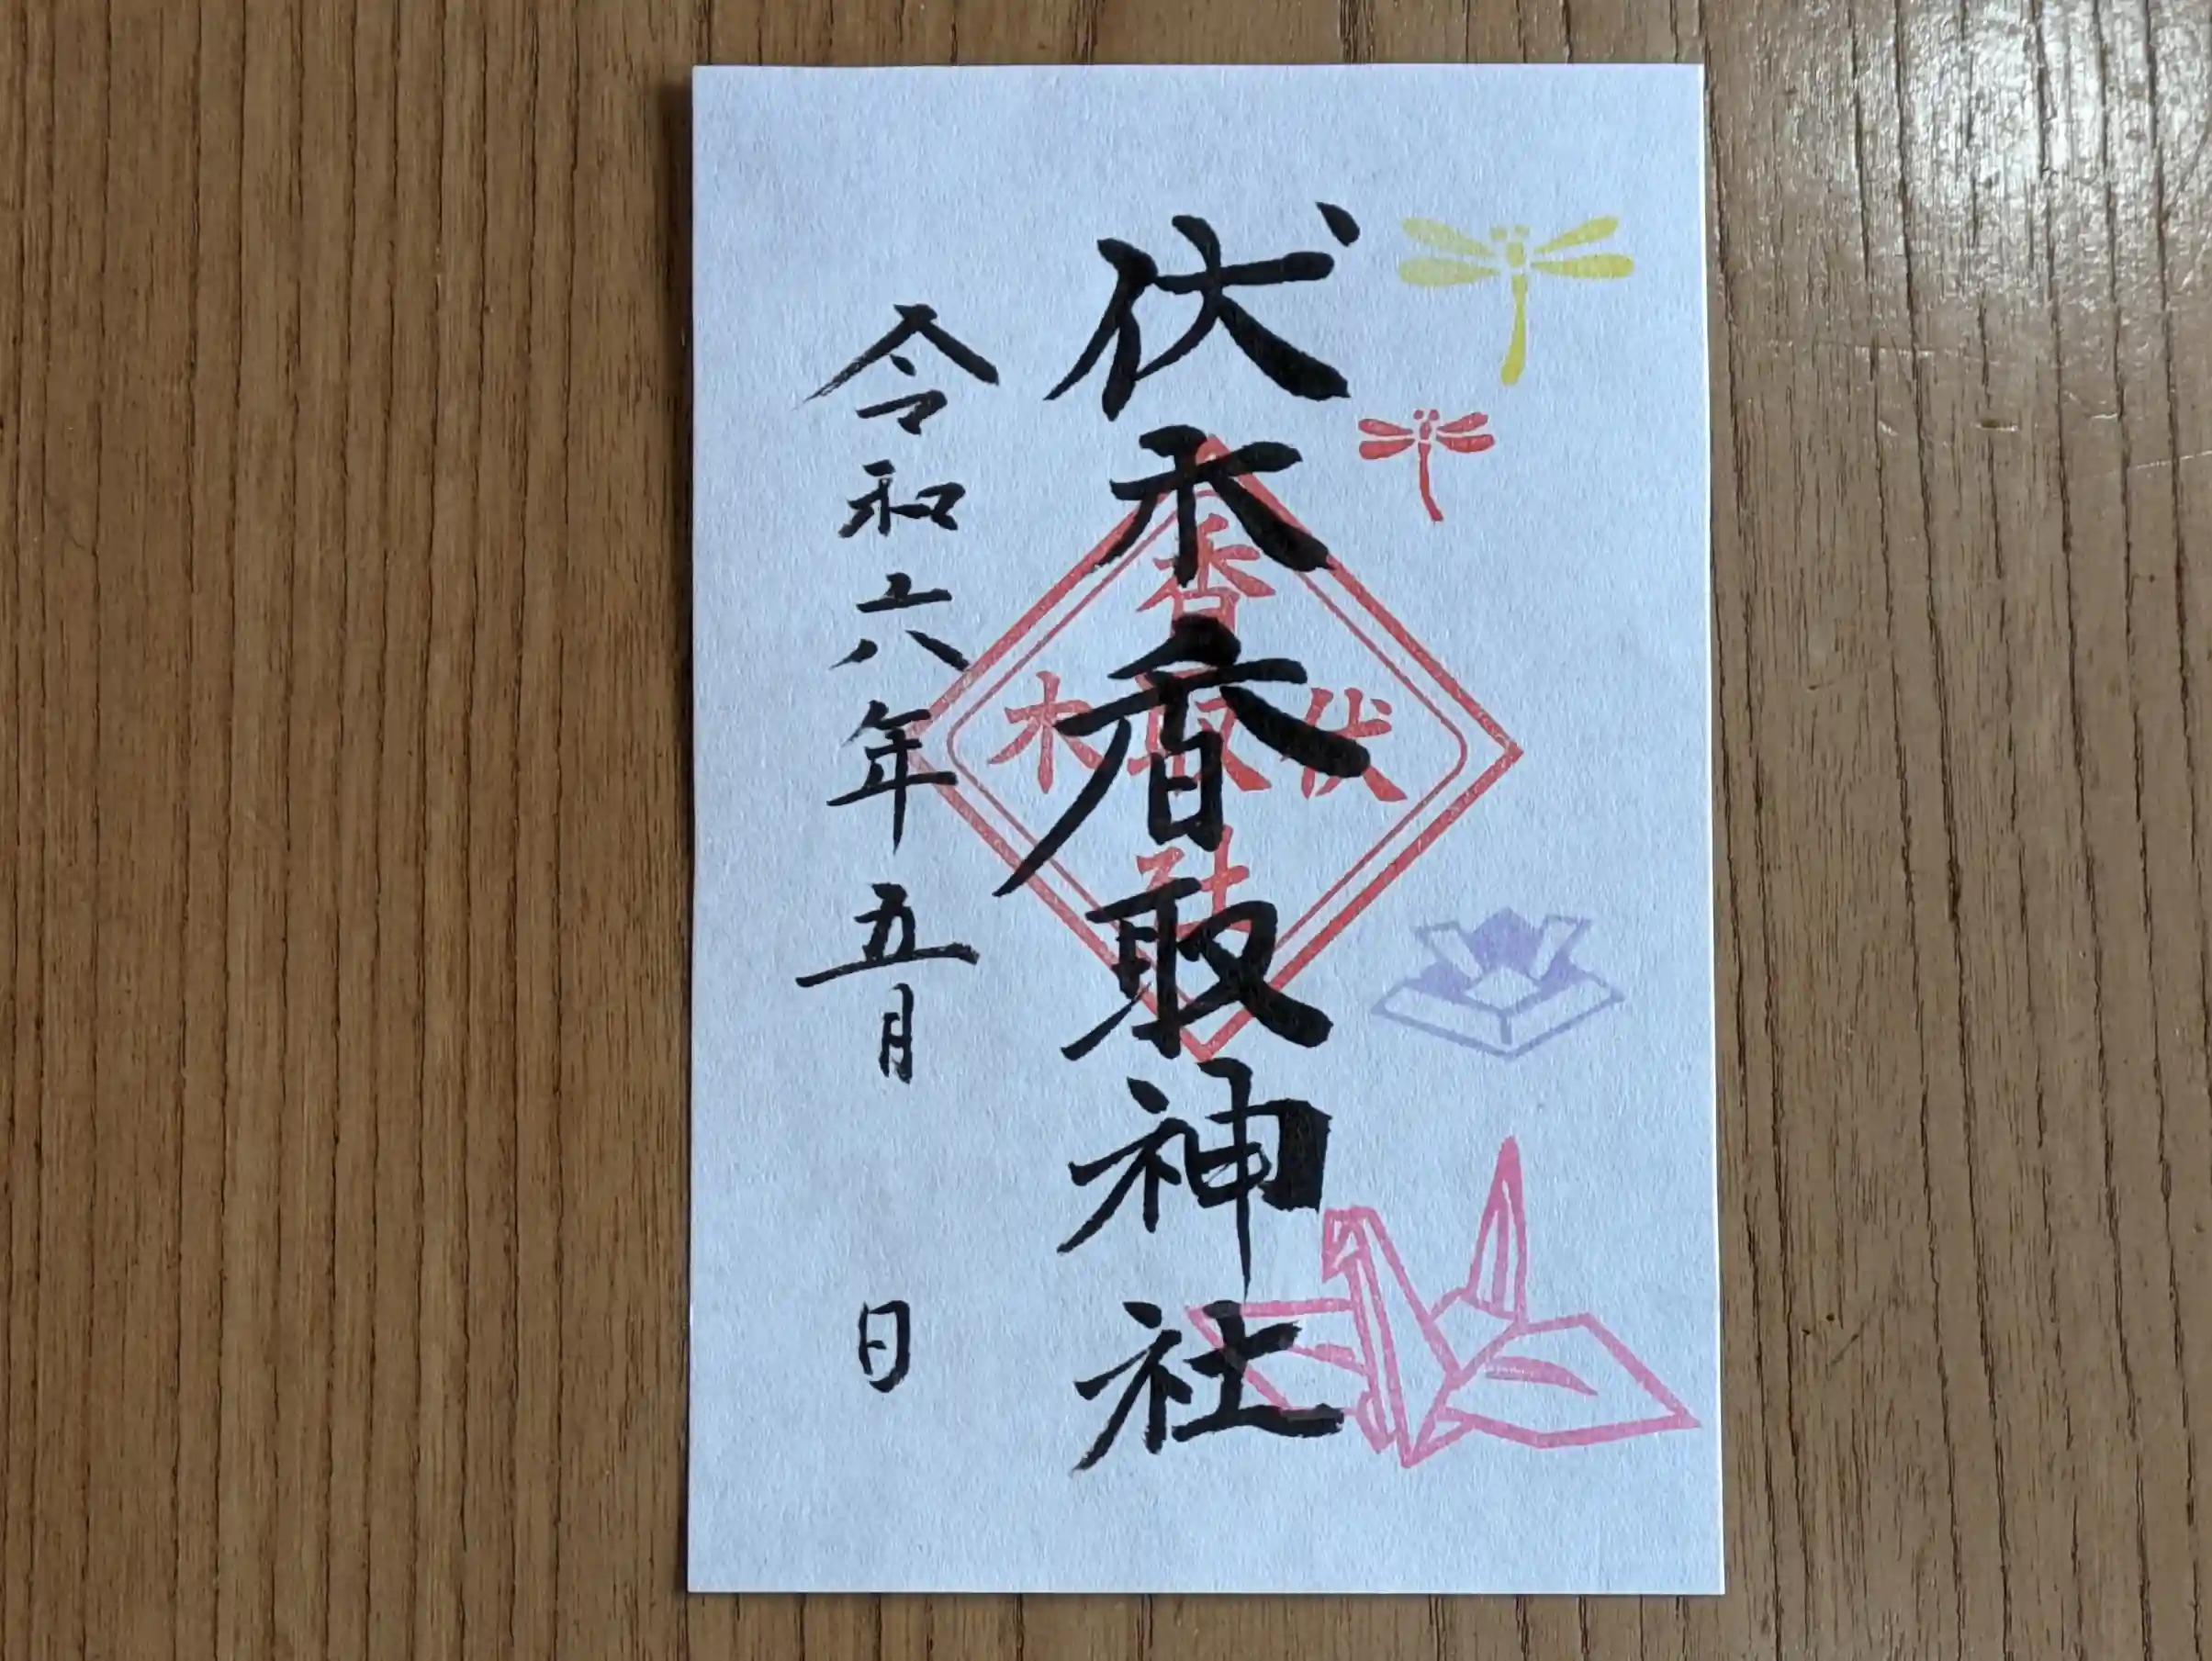 伏木香取神社
令和六年五月 日
香
伏 取 木
社